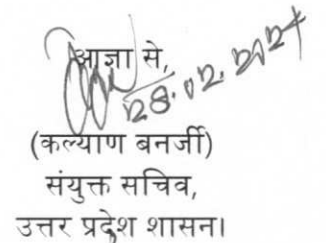 आज्ञा से,
28.02.2024
(कल्याण बनर्जी)
संयुक्त सचिव,
उत्तर प्रदेश शासन।